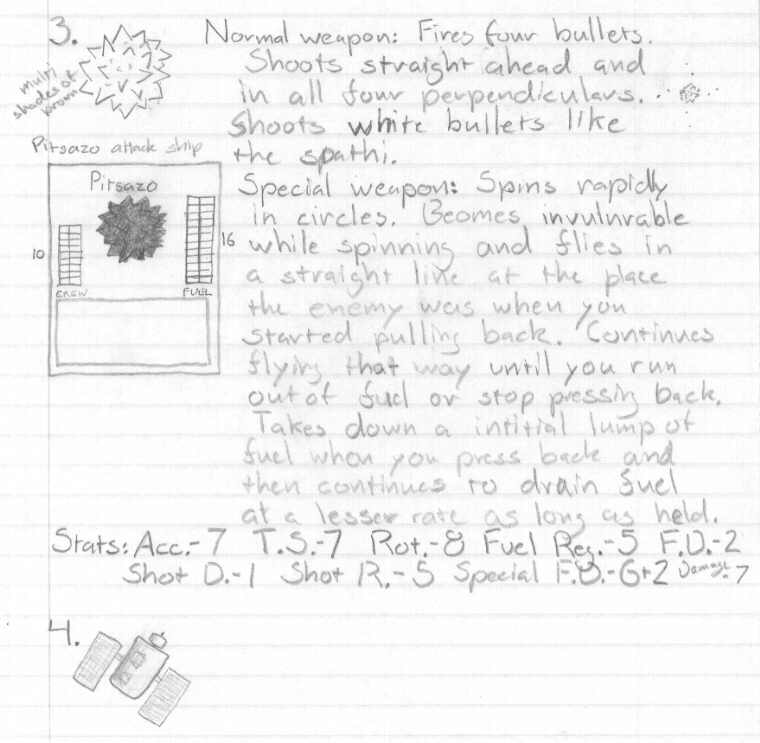 3.
multi
shades of
brown
Pitsazo attack ship
Pitsazo
10
16
CREW
FUEL
Normal weapon: Fires four bullets.
Shoots straight ahead and
in all four perpendiculars.
Shoots white bullets like
the spathi.
Special weapon: Spins rapidly
in circles. Beomes invulnrable
while spinning and flies in
a straight line at the place
the enemy was when you
started pulling back. Continues
flying that way until you run
out of fuel or stop pressing back.
Takes down a intitial lump of
fuel when you press back and
then continues to drain fuel
at a lesser rate as long as held.
Stats: Acc.-7 T.S.-7 Rot.-8 Fuel Reg.-5 F.D.-2
Shot D.-1 Shot R.-5 Special F.D.-6+2 Damage-7
4.